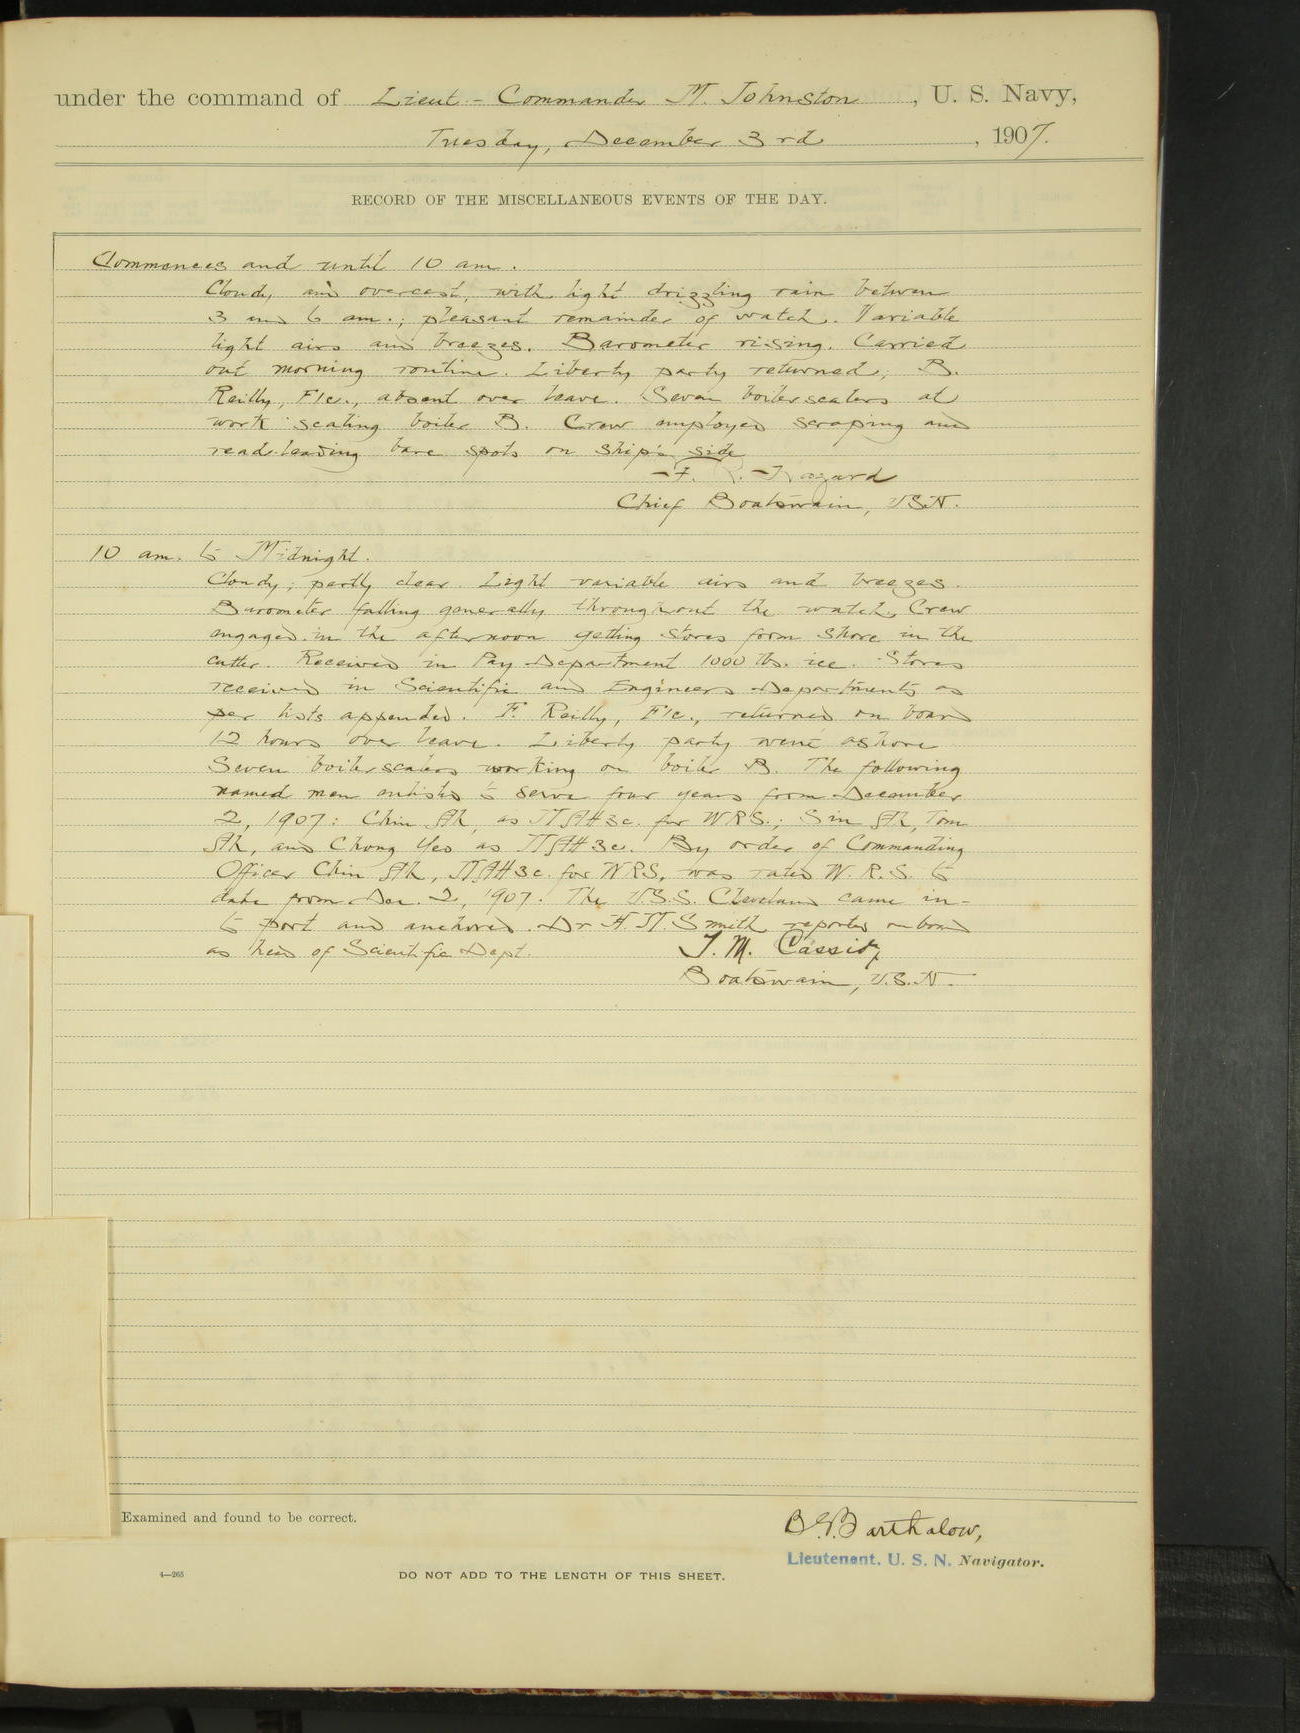 under the command of Lieut - Commander M. Johnston, U. S. Navy,
Tuesday, December 3rd, 1907.
RECORD OF THE MISCELLANEOUS EVENTS OF THE DAY.
Commences and until 10 am.
Cloudy and overcast, with light drizzling rain between
3 and 6 am.; pleasant remainder of watch. Variable
light airs and breezes. Barometer rising. Carried
out morning routine. Liberty party returned;
Reilly, F1c., absent over leave. Seven boiler scalers at
work scaling boiler B. Crew employed scraping and
read-leading bare spots on ship's side
Hazard
Chief Boatswain, USN.
10 am. to Midnight.
Cloudy; partly clear. Light variable airs and breezes.
Barometer falling generally throughout the watch. Crew
engaged in the afternoon getting stores form shore in the
cutter. Received in Pay Department 1000 lbs. ice. Stores
received in Scientific and Engineers Departments as
per lists appended. F. Reilly, F1c., returned on board
12 hours over leave. Liberty party went ashore
Seven boiler scalers working on boiler B. The following
named men enlisted to serve four years from December
2, 1907: Chin Ah, as MAtt3c. for WRS.; Sin Ah, Tom
Ah, and Chong Yeo as MAtt3c. By order of Commanding
Officer Chin Ah, MAtt3c. for WRS, was rated W. R. S. to
date from Dec. 2, 1907. The U.S.S. Cleveland came in-
to port and anchored. Dr H. M. Smith reported on board
as head of Scientific Dept.
T. M. Cassidy,
Boatswain, U.S.N.
Examined and found to be correct.
Barthalow,
Lieutenant, U. S. N. Navigator.
4—265
DO NOT ADD TO THE LENGTH OF THIS SHEET.